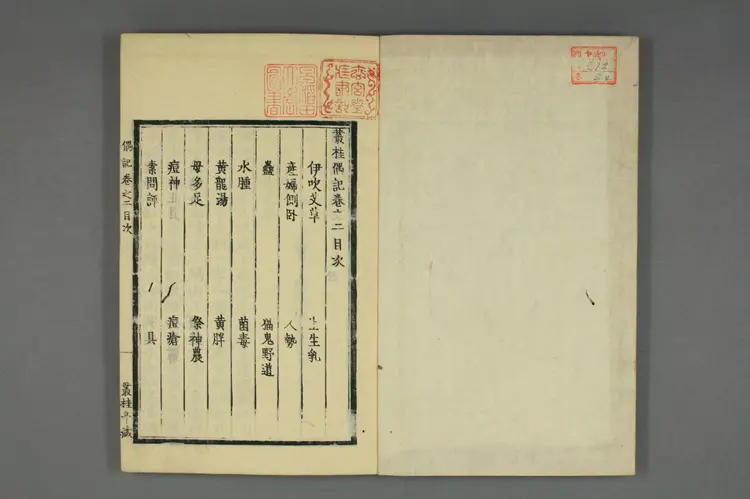 叢桂偶記卷之二目次
伊吹艾草
生乳
産婦側臥
人勢
蠱
猫鬼野道
水腫
菌毒
黄龍湯
黄胖
母多足
祭神農
痘神
痘瘡
素問評
具
偶記 卷之二目次
一
叢桂亭藏